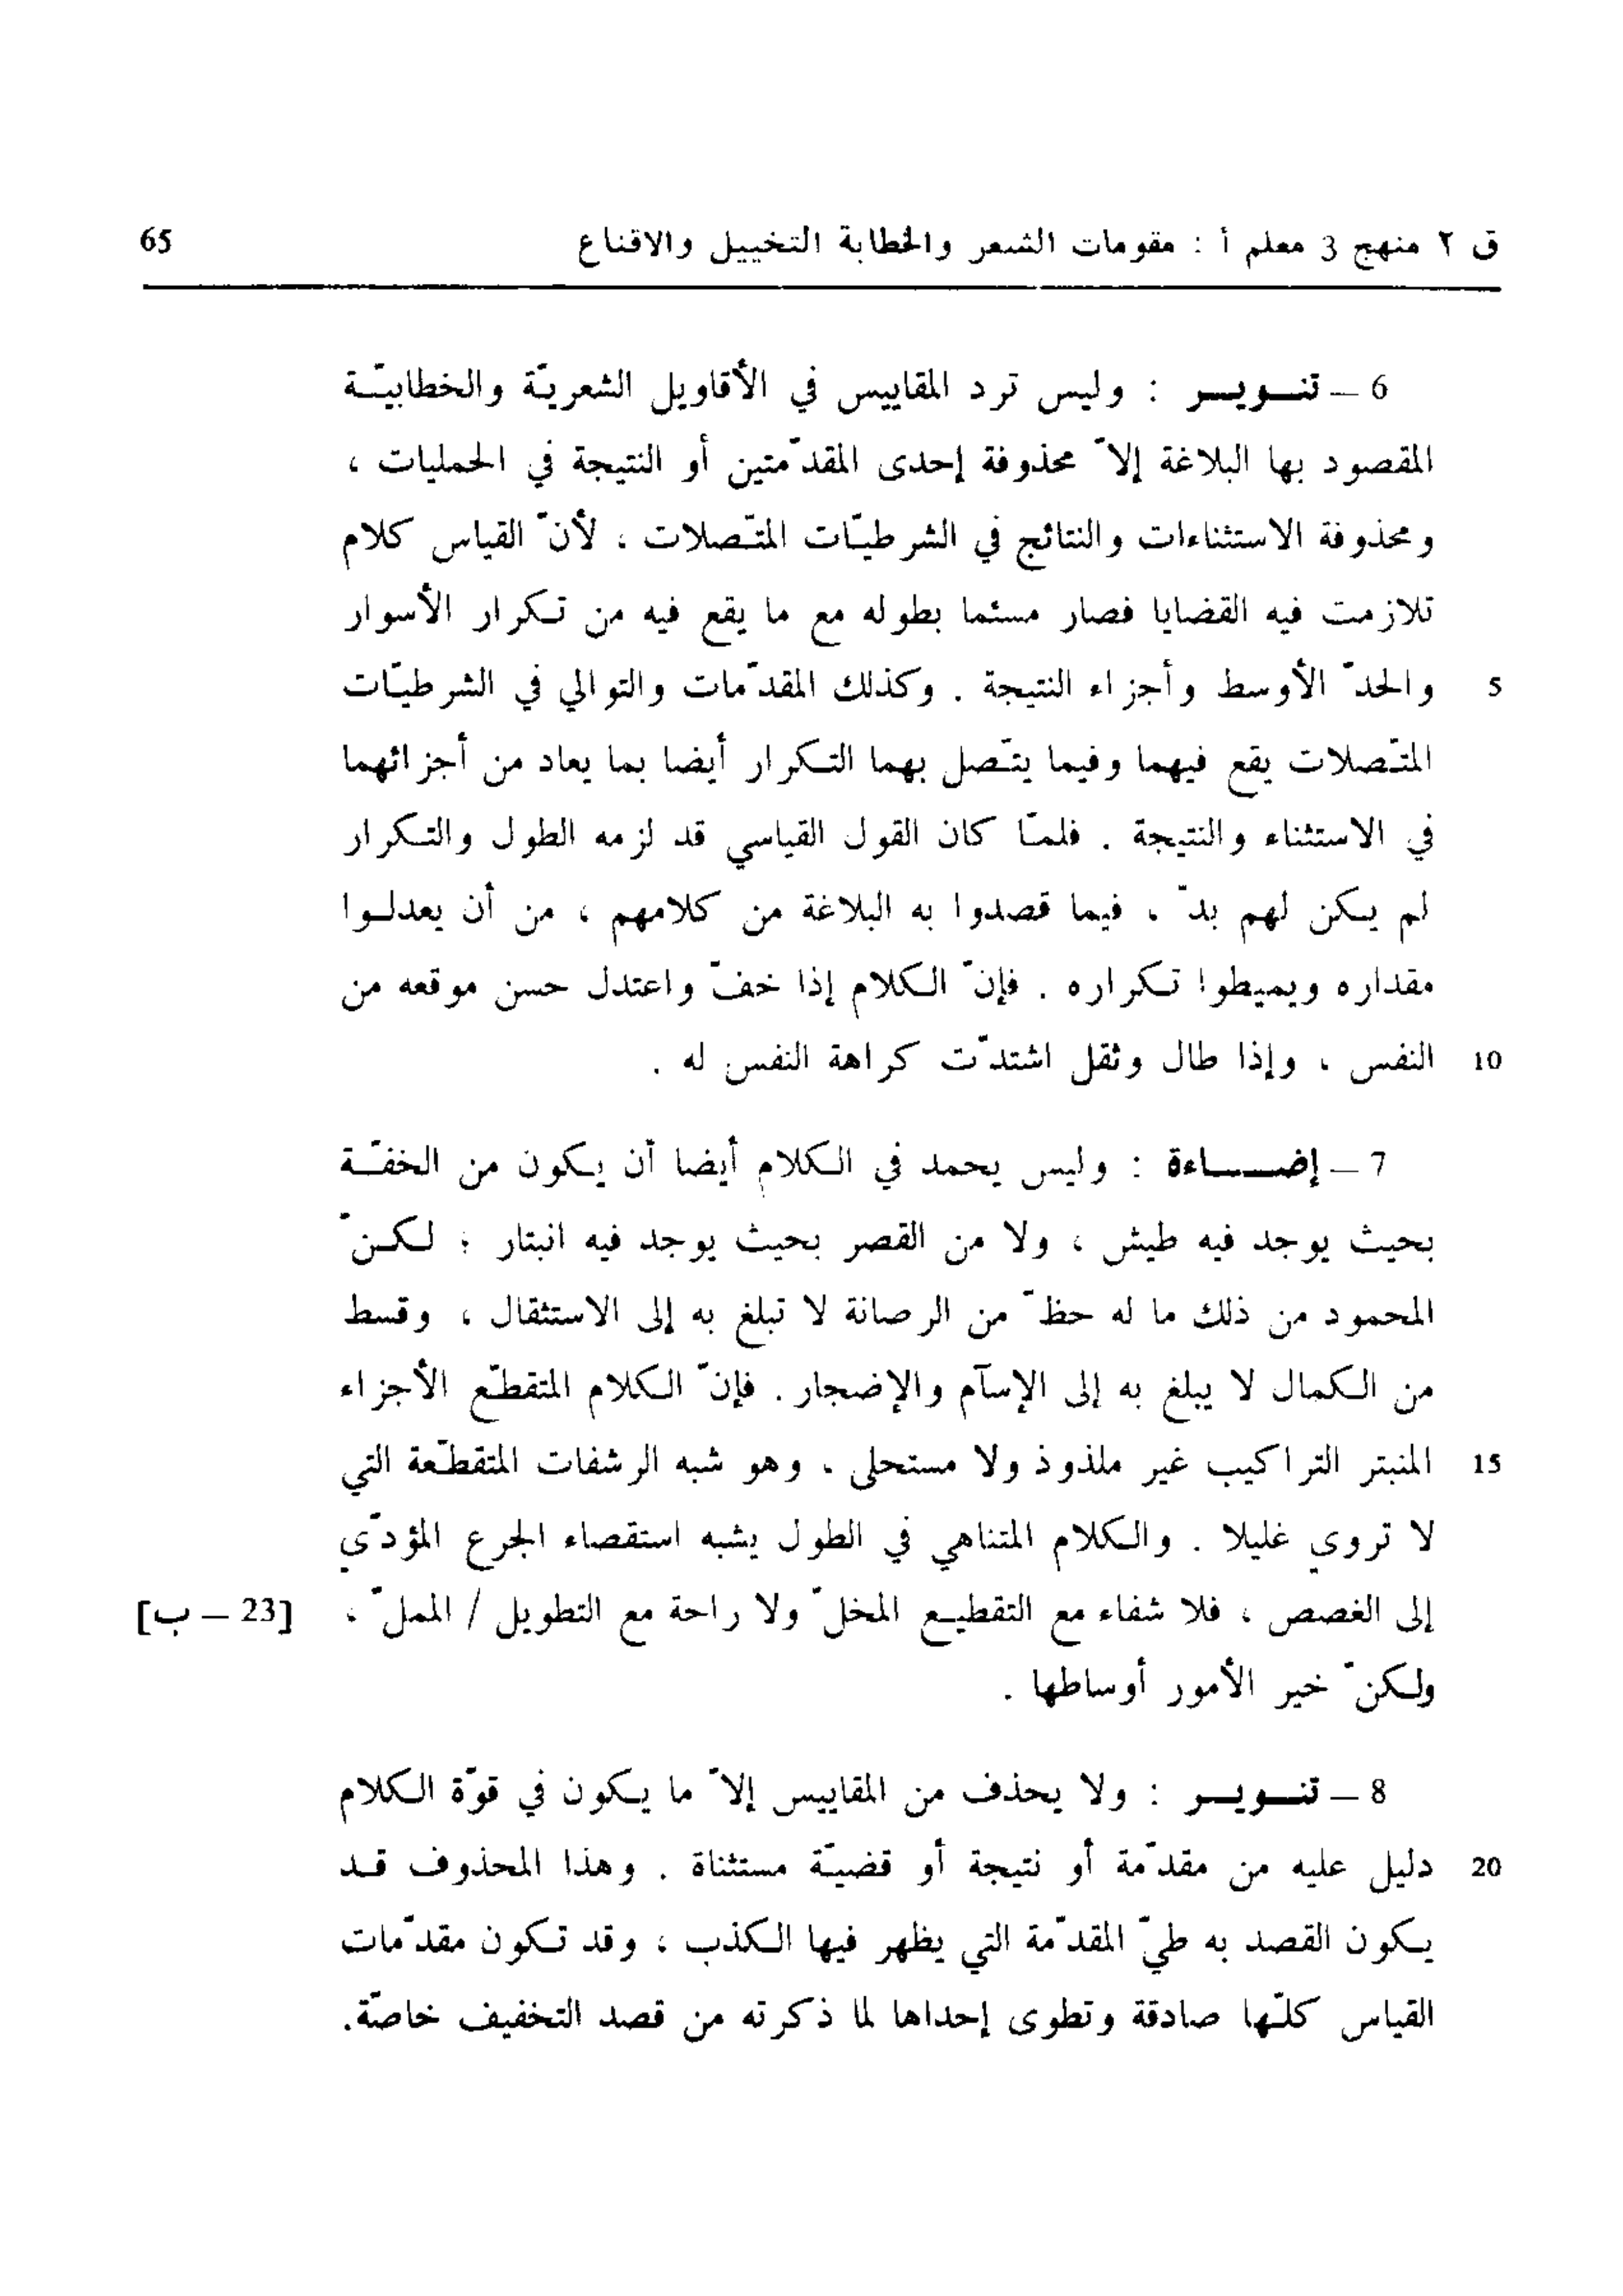 ق ٢ منهج 3 معلم أ : مقومات الشعر والخطابة التخييل والاقناع 65
6 – تنـويـر : وليس ترد المقاييس في الأقاويل الشعريّة والخطابيّـة
المقصود بها البلاغة إلاّ محذوفة إحدى المقدّمتين أو النتيجة في الحمليات ،
ومحذوفة الاستثناءات والنتائج في الشرطيّات المتّصلات ، لأنّ القياس كلام
تلازمت فيه القضايا فصار مسئما بطوله مع ما يقع فيه من تكرار الأسوار
5 والحدّ الأوسط وأجزاء النتيجة . وكذلك المقدّمات والتوالي في الشرطيّات
المتّصلات يقع فيهما وفيما يتّصل بهما التكرار أيضا بما يعاد من أجزائهما
في الاستثناء والنتيجة . فلمّا كان القول القياسي قد لزمه الطول والتكرار
لم يكن لهم بدّ ، فيما قصدوا به البلاغة من كلامهم ، من أن يعدلـوا
مقداره ويميطوا تكراره . فإنّ الكلام إذا خفّ واعتدل حسن موقعه من
10 النفس ، وإذا طال وثقل اشتدّت كراهة النفس له .
7 – إضـــاءة : وليس يحمد في الكلام أيضا أن يكون من الخفّـة
بحيث يوجد فيه طيش ، ولا من القصر بحيث يوجد فيه انبتار ؛ لكـنّ
المحمود من ذلك ما له حظّ من الرصانة لا تبلغ به إلى الاستثقال ، وقسط
من الكمال لا يبلغ به إلى الإسآم والإضجار . فإنّ الكلام المتقطّع الأجزاء
15 المنبتر التراكيب غير ملذوذ ولا مستحلى ، وهو شبه الرشفات المتقطّعة التي
لا تروي غليلا . والكلام المتناهي في الطول يشبه استقصاء الجرع المؤدّي
إلى الغصص ، فلا شفاء مع التقطيـع المخلّ ولا راحة مع التطويل / المملّ ، [23 – ب]
ولكنّ خير الأمور أوساطها .
8 – تنـويـر : ولا يحذف من المقاييس إلاّ ما يكون في قوّة الكلام
20 دليل عليه من مقدّمة أو نتيجة أو قضيّة مستثناة . وهذا المحذوف قـد
يكون القصد به طيّ المقدّمة التي يظهر فيها الكذب ، وقد تكون مقدّمات
القياس كلّها صادقة وتطوى إحداها لما ذكرته من قصد التخفيف خاصّة.